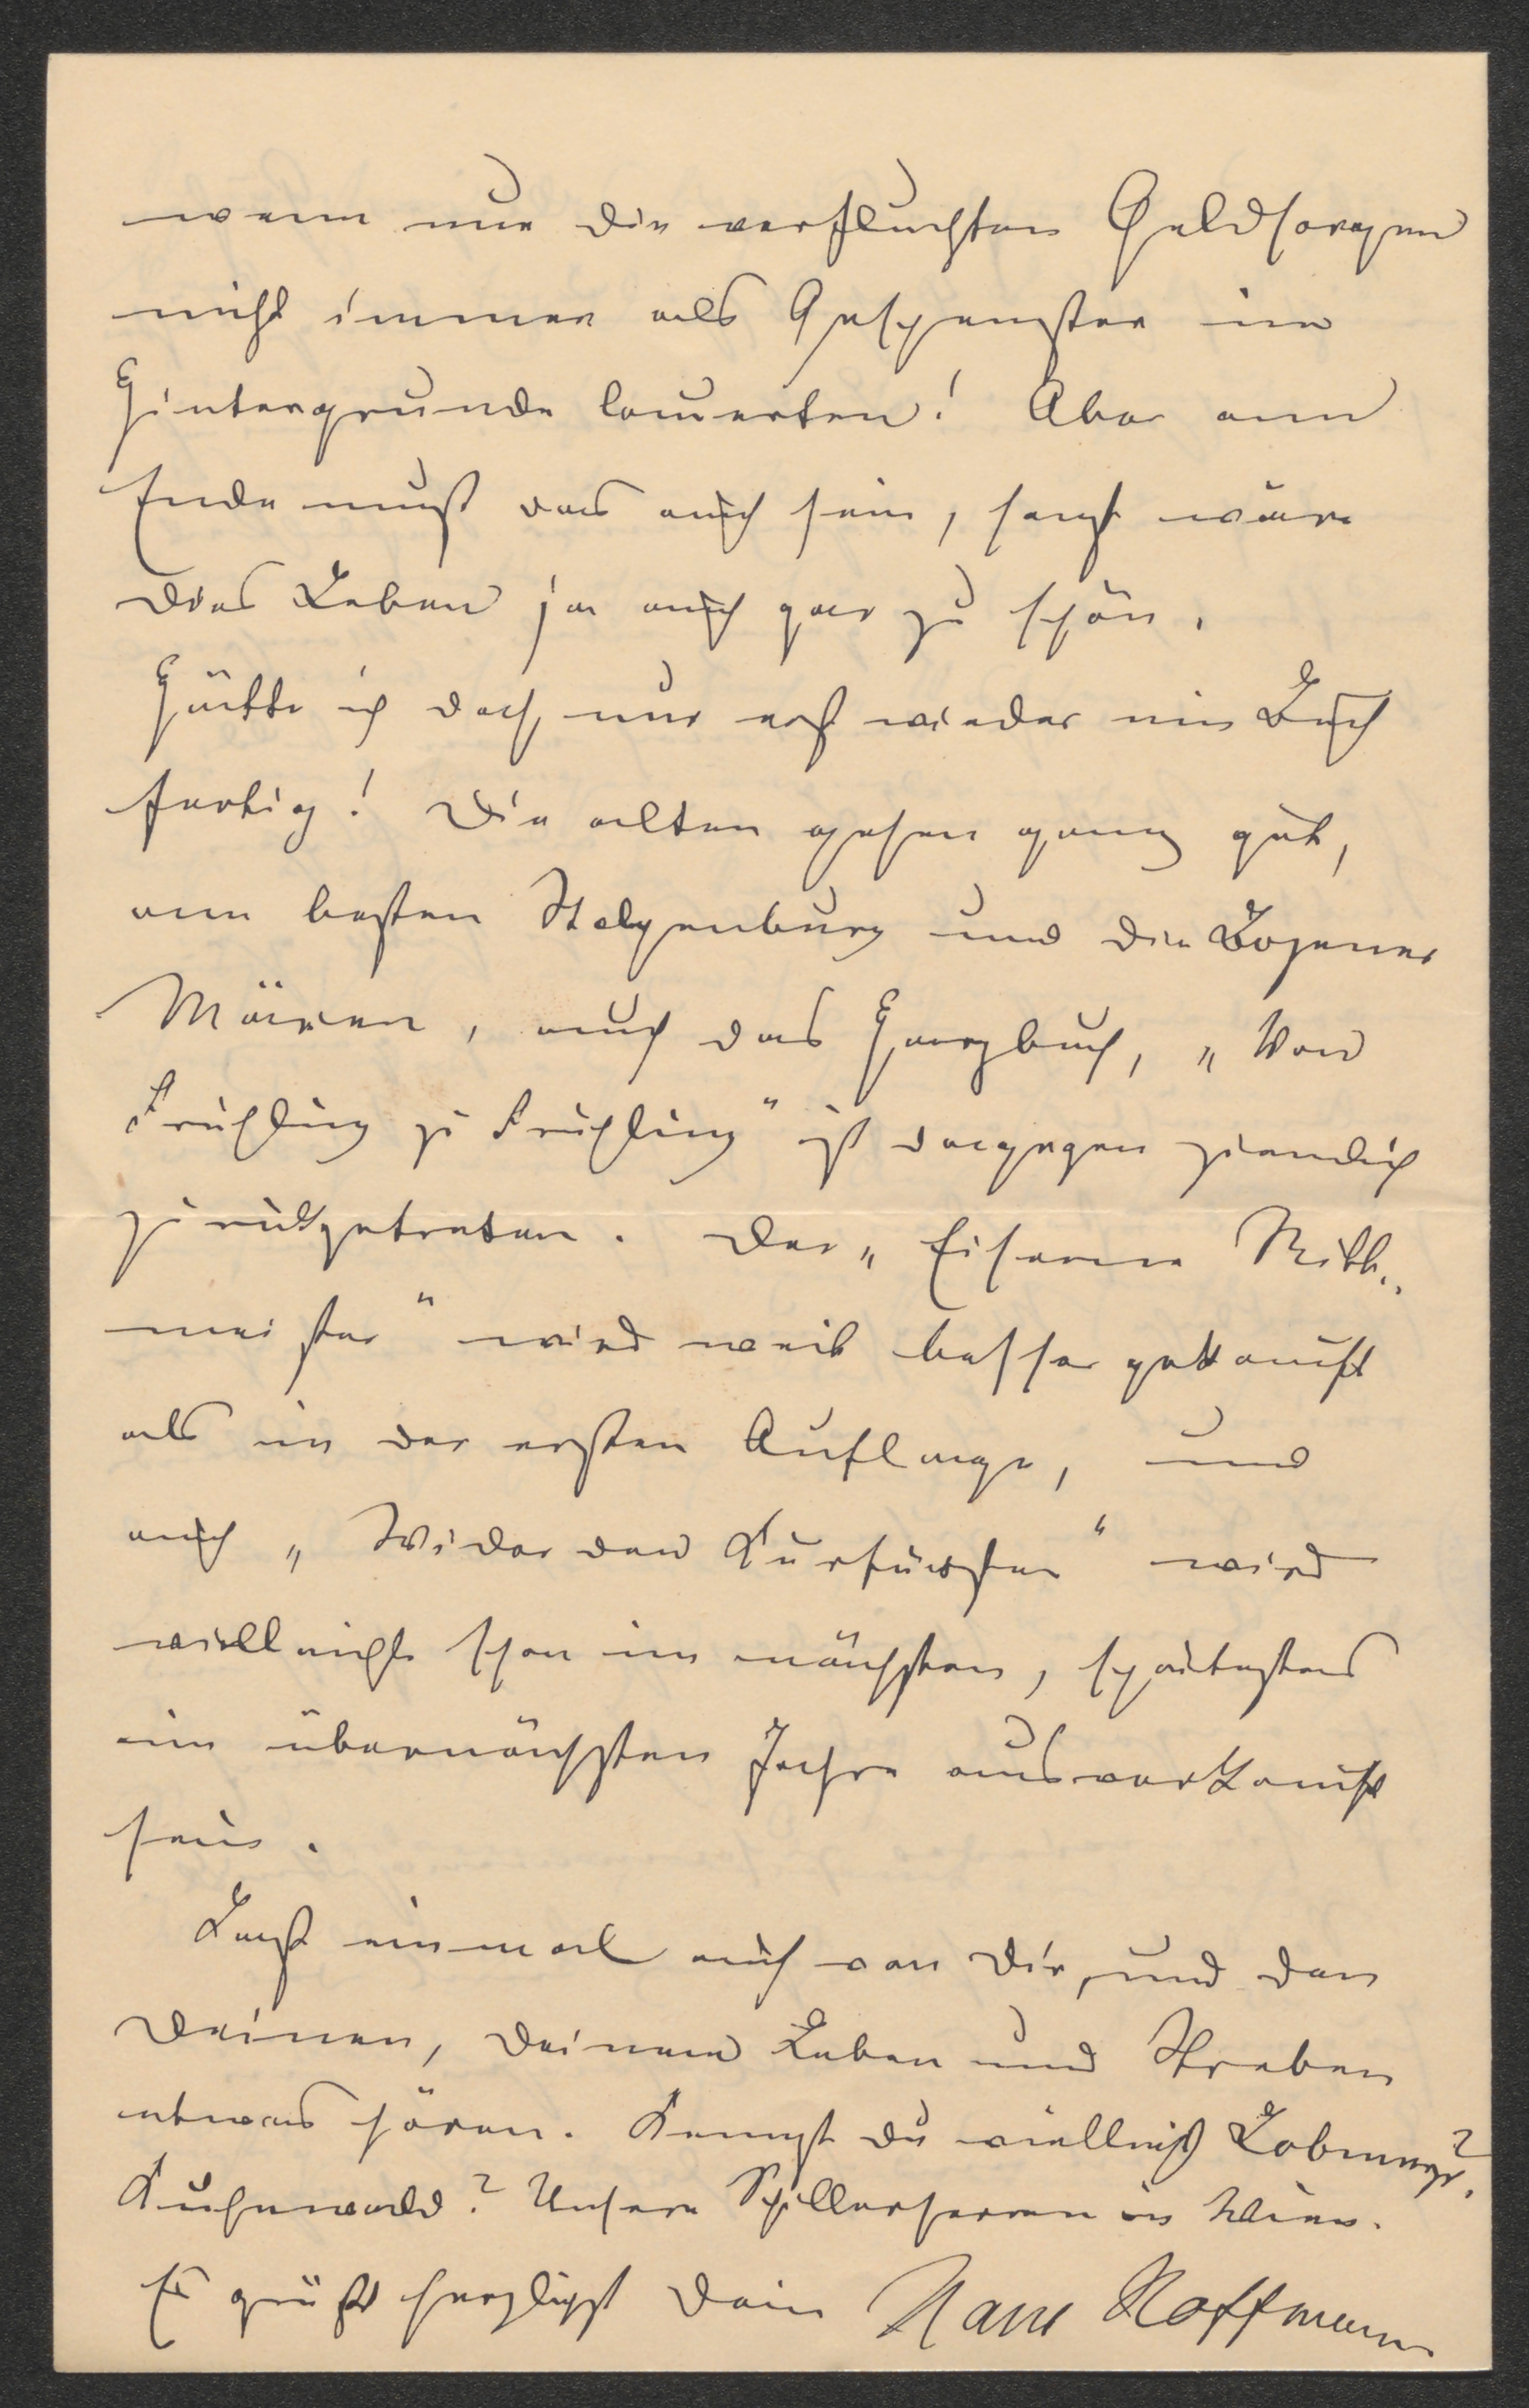 wenn nur die verfluchten Geldsorgen
nicht immer als Gespenster im
Hintergrunde lauerten! Aber am
Ende muß das auch sein, sonst wäre
das Leben ja auch gar zu schön.
Hätte ich doch nur erst wieder ein Buch
fertig! Die alten gehen ganz gut,
am besten Stolzenburg und die Bozener
Mären, auch das Harzbuch, „Von
Frühling zu Frühling" ist dagegen ziemlich
zurückgetreten. Der „Eiserne Ritt-
meister" wird weit besser gekauft
als in der ersten Auflage, und
auch „Wider den Kurfürsten" wird
vielleicht schon im nächsten, spätestens
im übernächsten Jahre ausverkauft
sein.
Laß einmal auch von Dir, und den
Deinen, Deinem Leben und Streben
etwas hören. Kennst Du vielleicht Lobmeyr?
Kuhnwald? Unsere Schillerherren in Wien.
Es grüßt herzlichst Dein Hans Hoffmann